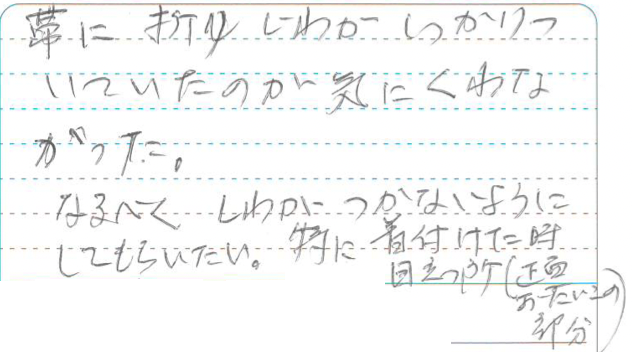 帯に 折り じわが しっかりつ
いていたのが気にくわな
がった。
なるべく しわが つかないように
してもらいたい。特に 着付けた時
目立つ所(正面
おたいこの
部分)